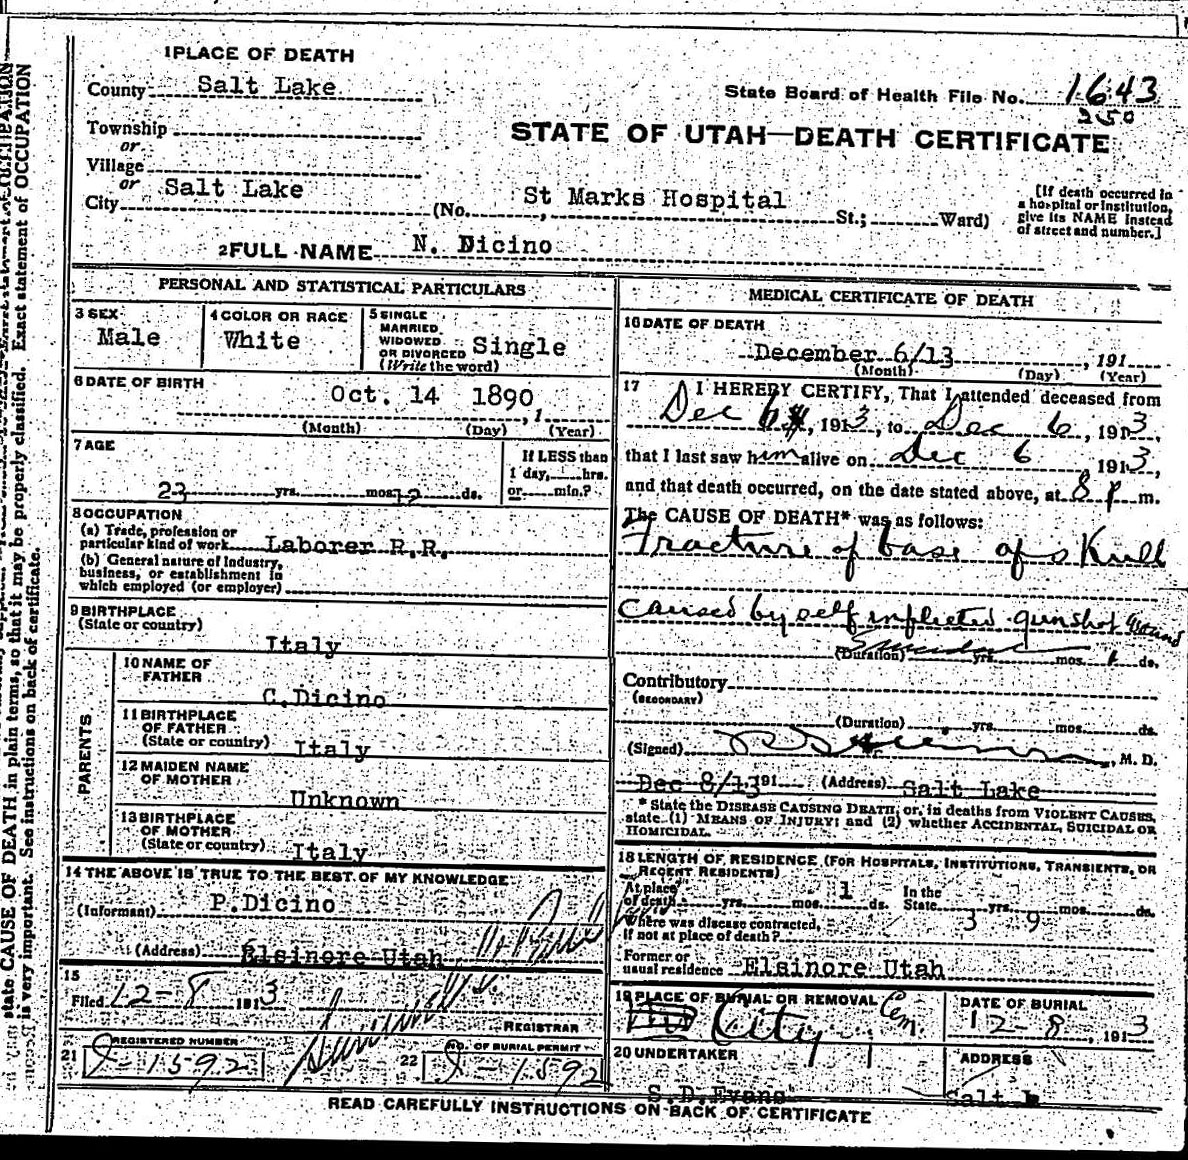 1 PLACE OF DEATH
County Salt Lake
State Board of Health File No. 1643
250
Township
or
STATE OF UTAH—DEATH CERTIFICATE
Village
or
City Salt Lake (No. St Marks Hospital St.; Ward)
[If death occurred in a hospital or institution, give its NAME instead of street and number.]
2 FULL NAME N. Dicino
PERSONAL AND STATISTICAL PARTICULARS
3 SEX
Male
4 COLOR OR RACE
White
5 SINGLE
MARRIED
WIDOWED
OR DIVORCED Single
(Write the word)
6 DATE OF BIRTH
Oct. 14 1890, 1
(Month) (Day) (Year)
7 AGE
If LESS than
1 day, hrs.
23 yrs. mos. ds. or min.?
8 OCCUPATION
(a) Trade, profession or
particular kind of work Laborer R.R.
(b) General nature of industry,
business, or establishment in
which employed (or employer)
9 BIRTHPLACE
(State or country)
Italy
PARENTS
10 NAME OF
FATHER
C. Dicino
11 BIRTHPLACE
OF FATHER
(State or country) Italy
12 MAIDEN NAME
OF MOTHER
Unknown
13 BIRTHPLACE
OF MOTHER
(State or country) Italy
14 THE ABOVE IS TRUE TO THE BEST OF MY KNOWLEDGE
(Informant) P. Dicino
(Address) Elsinore Utah
15
Filed 12-8 1913
REGISTRAR
21 REGISTERED NUMBER
1592
22 NO. OF BURIAL PERMIT
1592
MEDICAL CERTIFICATE OF DEATH
16 DATE OF DEATH
December 6/13, 191
(Month) (Day) (Year)
17 I HEREBY CERTIFY, That I attended deceased from
Dec 6, 1913, to Dec 6, 1913,
that I last saw him alive on Dec 6, 1913,
and that death occurred, on the date stated above, at 8 P m.
The CAUSE OF DEATH* was as follows:
Fracture of base of skull
caused by self inflicted gunshot wound
Suicidal
(Duration) yrs. mos. 1 ds.
Contributory
(SECONDARY)
(Duration) yrs. mos. ds.
(Signed) , M. D.
Dec 8/13 191 (Address) Salt Lake
* State the DISEASE CAUSING DEATH, or, in deaths from VIOLENT CAUSES,
state (1) MEANS OF INJURY; and (2) whether ACCIDENTAL, SUICIDAL OR
HOMICIDAL.
18 LENGTH OF RESIDENCE (FOR HOSPITALS, INSTITUTIONS, TRANSIENTS, OR
RECENT RESIDENTS)
At place
of death yrs. mos. 1 ds. In the
State 3 yrs. 9 mos. ds.
Where was disease contracted,
if not at place of death?
Former or
usual residence Elsinore Utah
19 PLACE OF BURIAL OR REMOVAL
City Cem.
DATE OF BURIAL
12-8, 1913
20 UNDERTAKER
S.D. Evans
ADDRESS
Salt L
READ CAREFULLY INSTRUCTIONS ON BACK OF CERTIFICATE
state CAUSE OF DEATH in plain terms, so that it may be properly classified. Exact statement of OCCUPATION
is very important. See instructions on back of certificate.